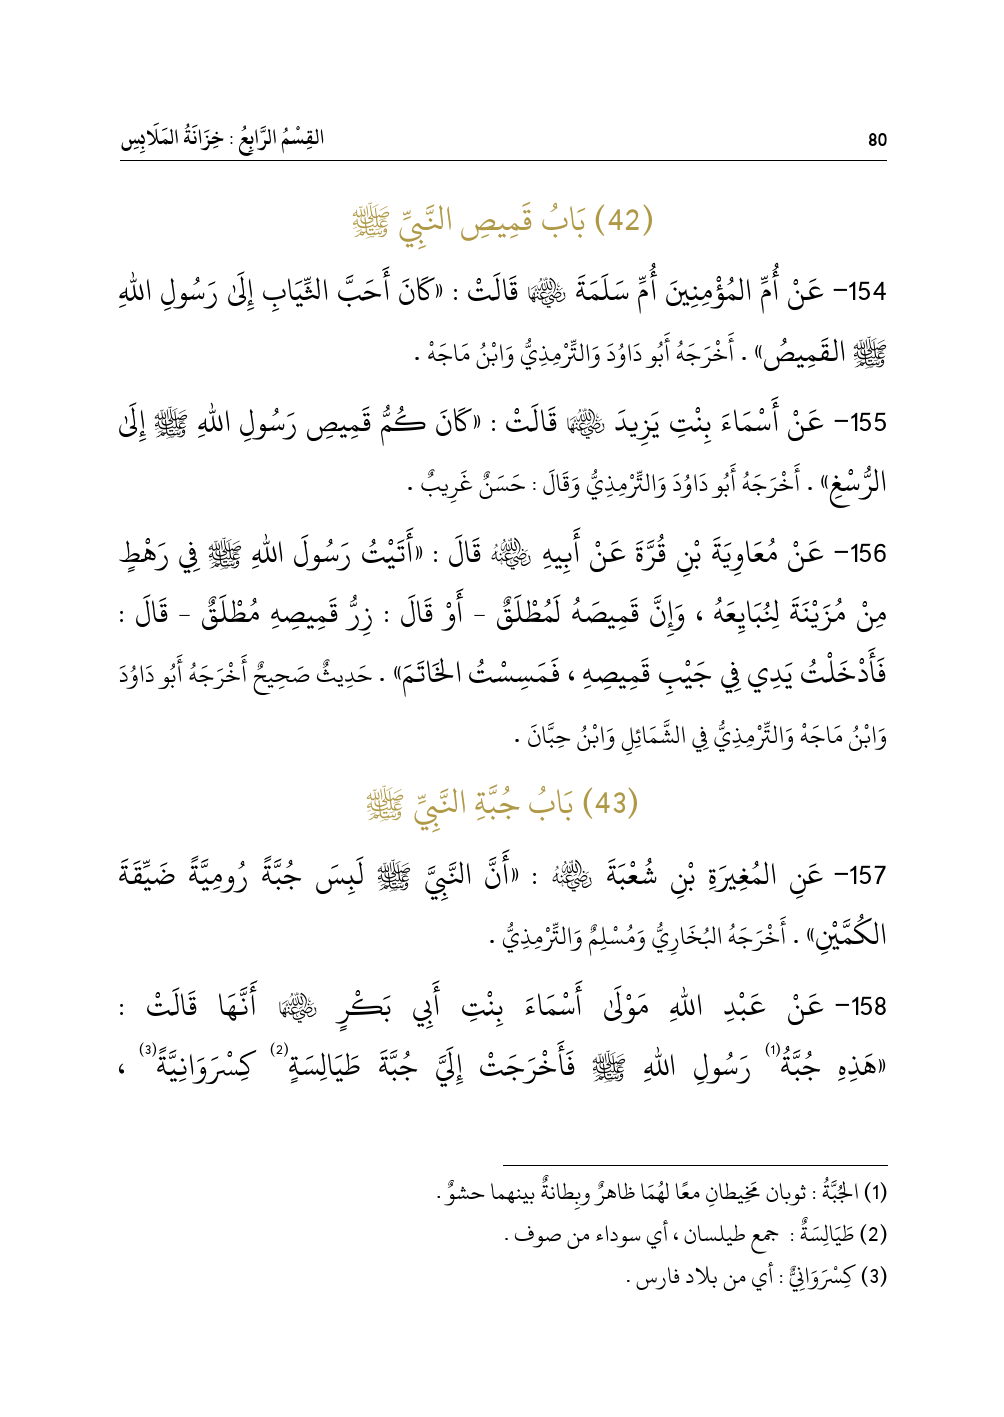 80 القِسْمُ الرَّابِعُ : خِزَانَةُ المَلَابِسِ
(42) بَابُ قَمِيصِ النَّبِيِّ ﷺ
154– عَنْ أُمِّ المُؤْمِنِينَ أُمِّ سَلَمَةَ رَضِيَ اللهُ عَنْهَا قَالَتْ : «كَانَ أَحَبَّ الثِّيَابِ إِلَىٰ رَسُولِ اللهِ
ﷺ القَمِيصُ» . أَخْرَجَهُ أَبُو دَاوُدَ وَالتِّرْمِذِيُّ وَابْنُ مَاجَهْ .
155– عَنْ أَسْمَاءَ بِنْتِ يَزِيدَ رَضِيَ اللهُ عَنْهَا قَالَتْ : «كَانَ كُمُّ قَمِيصِ رَسُولِ اللهِ ﷺ إِلَىٰ
الرُّسْغِ» . أَخْرَجَهُ أَبُو دَاوُدَ وَالتِّرْمِذِيُّ وَقَالَ : حَسَنٌ غَرِيبٌ .
156– عَنْ مُعَاوِيَةَ بْنِ قُرَّةَ عَنْ أَبِيهِ رَضِيَ اللهُ عَنْهُ قَالَ : «أَتَيْتُ رَسُولَ اللهِ ﷺ فِي رَهْطٍ
مِنْ مُزَيْنَةَ لِنُبَايِعَهُ ، وَإِنَّ قَمِيصَهُ لَمُطْلَقٌ – أَوْ قَالَ : زِرُّ قَمِيصِهِ مُطْلَقٌ – قَالَ :
فَأَدْخَلْتُ يَدِي فِي جَيْبِ قَمِيصِهِ ، فَمَسِسْتُ الخَاتَمَ» . حَدِيثٌ صَحِيحٌ أَخْرَجَهُ أَبُو دَاوُدَ
وَابْنُ مَاجَهْ وَالتِّرْمِذِيُّ فِي الشَّمَائِلِ وَابْنُ حِبَّانَ .
(43) بَابُ جُبَّةِ النَّبِيِّ ﷺ
157– عَنِ المُغِيرَةِ بْنِ شُعْبَةَ رَضِيَ اللهُ عَنْهُ : «أَنَّ النَّبِيَّ ﷺ لَبِسَ جُبَّةً رُومِيَّةً ضَيِّقَةَ
الكُمَّيْنِ» . أَخْرَجَهُ البُخَارِيُّ وَمُسْلِمٌ وَالتِّرْمِذِيُّ .
158– عَنْ عَبْدِ اللهِ مَوْلَىٰ أَسْمَاءَ بِنْتِ أَبِي بَكْرٍ رَضِيَ اللهُ عَنْهَا أَنَّهَا قَالَتْ :
«هَذِهِ جُبَّةُ(1) رَسُولِ اللهِ ﷺ فَأَخْرَجَتْ إِلَيَّ جُبَّةَ طَيَالِسَةٍ(2) كِسْرَوَانِيَّةً(3) ،
(1) الجُبَّةُ : ثوبان مَخِيطانِ معًا لهُمَا ظاهرٌ وبِطانةٌ بينهما حشوٌ .
(2) طَيَالِسَةٌ : جمع طيلسان ، أي سوداء من صوف .
(3) كِسْرَوَانِيٌّ : أي من بلاد فارس .